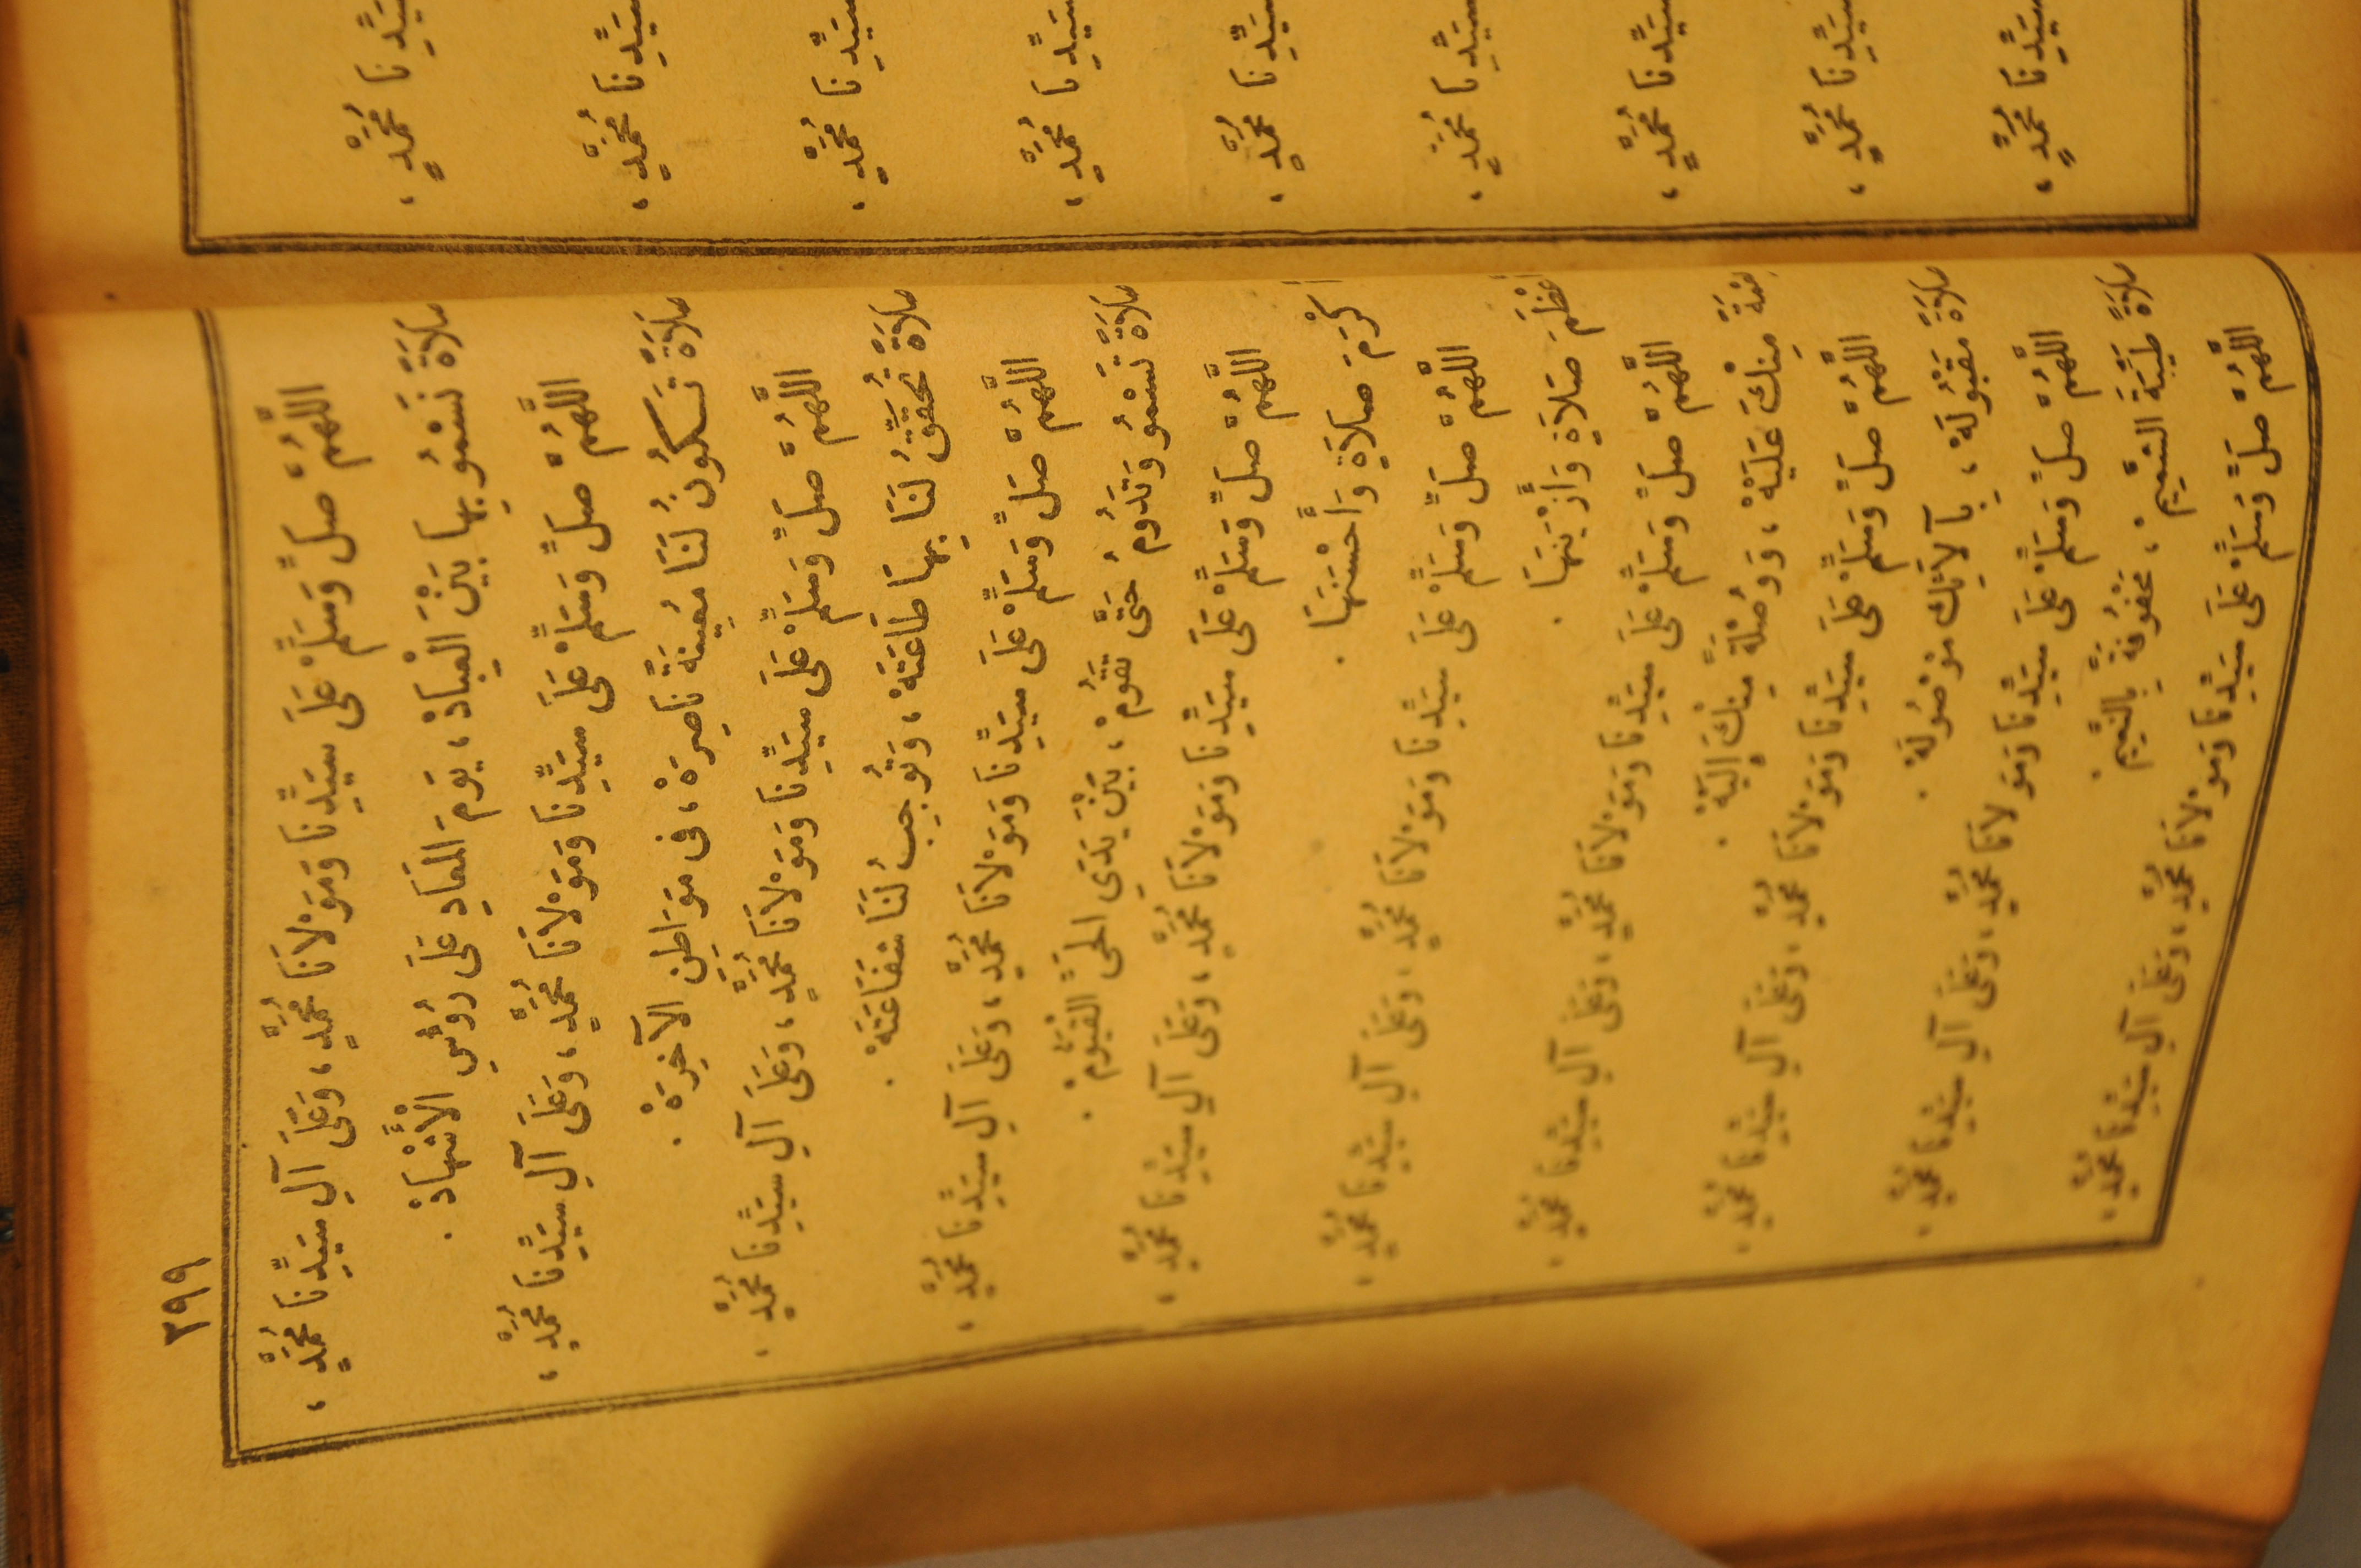 ٣٩٩
اللَّهُمَّ صَلِّ وَسَلِّمْ عَلَى سَيِّدِنَا وَمَوْلَانَا مُحَمَّدٍ، وَعَلَى آلِ سَيِّدِنَا مُحَمَّدٍ،
صَلَاةً نَسْمُو بِهَا بَيْنَ الْعِبَادْ، يَوْمَ الْمَعَادِ عَلَى رُؤُسِ الْأَشْهَادْ.
اللَّهُمَّ صَلِّ وَسَلِّمْ عَلَى سَيِّدِنَا وَمَوْلَانَا مُحَمَّدٍ، وَعَلَى آلِ سَيِّدِنَا مُحَمَّدٍ،
صَلَاةً تَكُونُ لَنَا مُعِينَةً نَاصِرَهْ، فِى مَوَاطِنِ الْآخِرَهْ.
اللَّهُمَّ صَلِّ وَسَلِّمْ عَلَى سَيِّدِنَا وَمَوْلَانَا مُحَمَّدٍ، وَعَلَى آلِ سَيِّدِنَا مُحَمَّدٍ،
صَلَاةً تُحَقِّقُ لَنَا بِهَا طَاعَتَهْ، وَتُوجِبُ لَنَا شَفَاعَتَهْ.
اللَّهُمَّ صَلِّ وَسَلِّمْ عَلَى سَيِّدِنَا وَمَوْلَانَا مُحَمَّدٍ، وَعَلَى آلِ سَيِّدِنَا مُحَمَّدٍ،
صَلَاةً تَسْمُو وَتَدُومُ حَتَّى تَقُومْ، بَيْنَ يَدَيِ الْحَىِّ الْقَيُّومْ.
اللَّهُمَّ صَلِّ وَسَلِّمْ عَلَى سَيِّدِنَا وَمَوْلَانَا مُحَمَّدٍ، وَعَلَى آلِ سَيِّدِنَا مُحَمَّدٍ،
أَكْرَمَ صَلَاةٍ وَأَحْسَنَهَا.
اللَّهُمَّ صَلِّ وَسَلِّمْ عَلَى سَيِّدِنَا وَمَوْلَانَا مُحَمَّدٍ، وَعَلَى آلِ سَيِّدِنَا مُحَمَّدٍ،
أَعْظَمَ صَلَاةٍ وَأَزْيَنَهَا.
اللَّهُمَّ صَلِّ وَسَلِّمْ عَلَى سَيِّدِنَا وَمَوْلَانَا مُحَمَّدٍ، وَعَلَى آلِ سَيِّدِنَا مُحَمَّدٍ،
مِنْكَ عَلَيْهْ، وَوُصْلَةً مِنْكَ إِلَيْهْ.
اللَّهُمَّ صَلِّ وَسَلِّمْ عَلَى سَيِّدِنَا وَمَوْلَانَا مُحَمَّدٍ، وَعَلَى آلِ سَيِّدِنَا مُحَمَّدٍ،
صَلَاةً مَقْبُولَهْ، بِآلَائِكَ مَوْصُولَهْ.
اللَّهُمَّ صَلِّ وَسَلِّمْ عَلَى سَيِّدِنَا وَمَوْلَانَا مُحَمَّدٍ، وَعَلَى آلِ سَيِّدِنَا مُحَمَّدٍ،
صَلَاةً طَيِّبَةَ الشَّمِيمْ، مَحْفُوفَةً بِالنَّعِيمْ.
اللَّهُمَّ صَلِّ وَسَلِّمْ عَلَى سَيِّدِنَا وَمَوْلَانَا مُحَمَّدٍ، وَعَلَى آلِ سَيِّدِنَا مُحَمَّدٍ،
سَيِّدِنَا مُحَمَّدٍ،
سَيِّدِنَا مُحَمَّدٍ،
سَيِّدِنَا مُحَمَّدٍ،
سَيِّدِنَا مُحَمَّدٍ،
سَيِّدِنَا مُحَمَّدٍ،
سَيِّدِنَا مُحَمَّدٍ،
سَيِّدِنَا مُحَمَّدٍ،
سَيِّدِنَا مُحَمَّدٍ،
سَيِّدِنَا مُحَمَّدٍ،